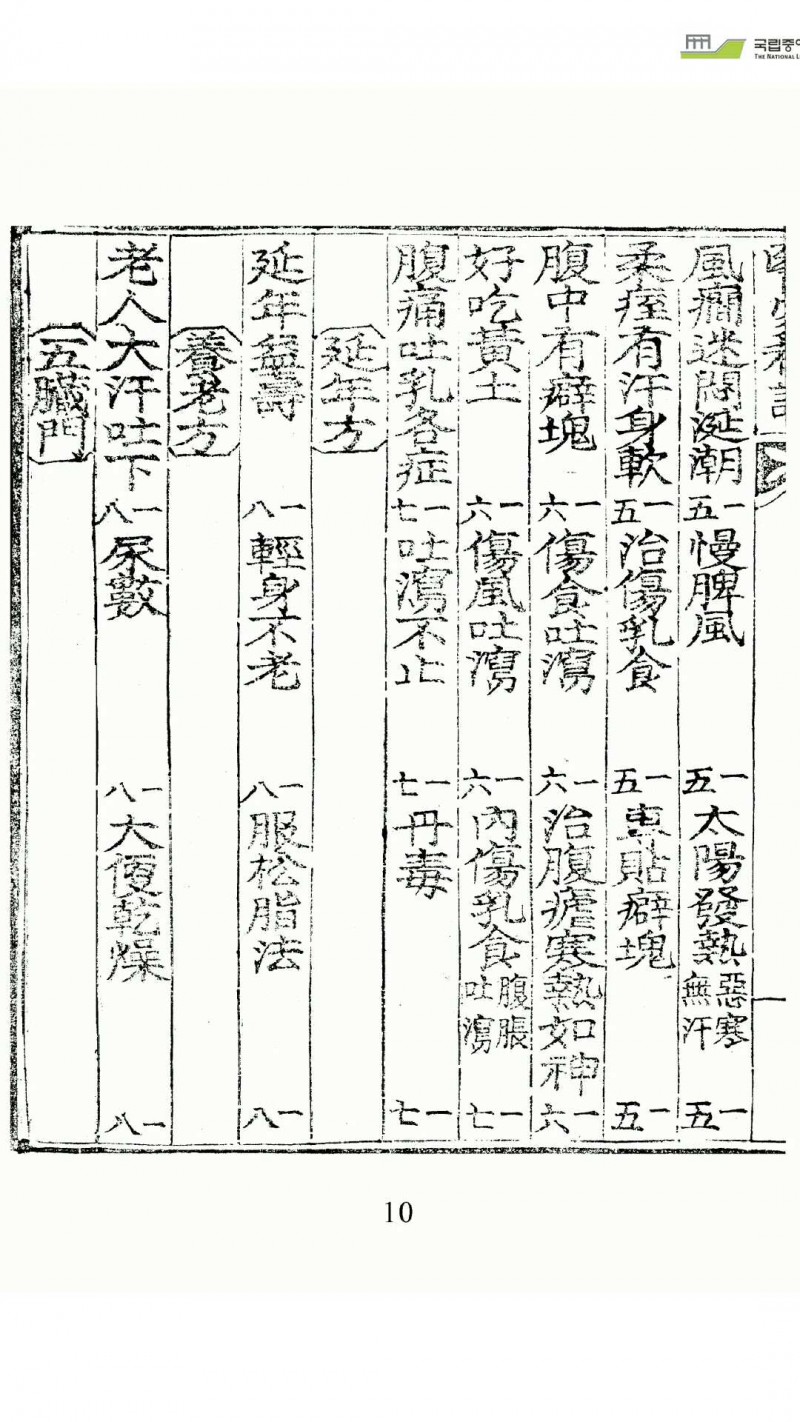 국립중
THE NATIONAL L
風癎迷悶涎潮 一五 慢脾風 一五 太陽發熱 惡寒無汗 一五
柔痓有汗身軟 一五 治傷乳食 一五 專貼癖塊 一五
腹中有癖塊 一六 傷食吐瀉 一六 治腹瘧寒熱如神 一六
好吃黃土 一六 傷風吐瀉 一六 內傷乳食 腹脹吐瀉 一七
腹痛吐乳各症 一七 吐瀉不止 一七 丹毒 一七
延年方
延年益壽 一八 輕身不老 一八 服松脂法 一八
養老方
老人大汗吐下 一八 尿數 一八 大便乾燥 一八
五臟門
10